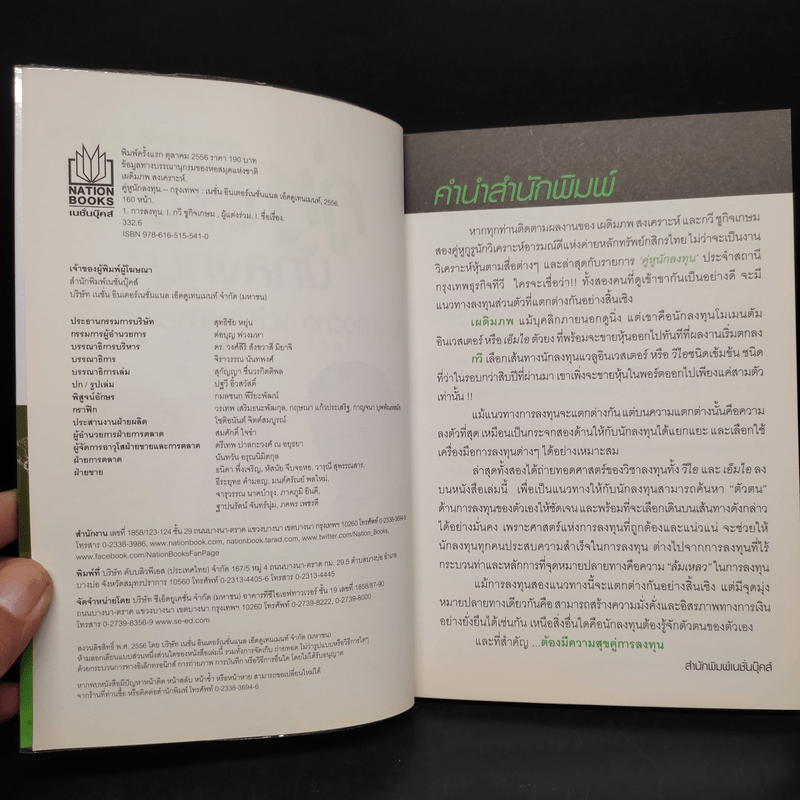 NATION
BOOKS
เนชั่นบุ๊คส์
พิมพ์ครั้งแรก ตุลาคม 2556 ราคา 190 บาท
ข้อมูลทางบรรณานุกรมของหอสมุดแห่งชาติ
เผดิมภพ สงเคราะห์.
คู่หูนักลงทุน.-- กรุงเทพฯ : เนชั่น อินเตอร์เนชั่นแนล เอ็ดดูเทนเมนท์, 2556.
160 หน้า.
1. การลงทุน. I. กวี ชูกิจเกษม , ผู้แต่งร่วม. I. ชื่อเรื่อง.
332.6
ISBN 978-616-515-541-0
เจ้าของผู้พิมพ์ผู้โฆษณา
สำนักพิมพ์เนชั่นบุ๊คส์
บริษัท เนชั่น อินเตอร์เนชั่นแนล เอ็ดดูเทนเมนท์ จำกัด (มหาชน)
ประธานกรรมการบริษัท สุทธิชัย หยุ่น
กรรมการผู้อำนวยการ ต่อบุญ พ่วงมหา
บรรณาธิการบริหาร ดร. วงศ์สิริ สังขวาสี มิยาจิ
บรรณาธิการ จิราวรรณ นันทพงศ์
บรรณาธิการเล่ม สุกัญญา ชื่นวรกิตติพล
ปก / รูปเล่ม ปฐวี อิ่วสวัสดิ์
พิสูจน์อักษร กมลชนก พิริยะพัฒน์
กราฟิก วรเทพ เสริมธนะพัฒนกุล, กฤษณา แก้วประเสริฐ, กาญจนา
ประสานงานฝ่ายผลิต โชติอนันต์ จิตต์สมบูรณ์
ผู้อำนวยการฝ่ายการตลาด สมศักดิ์ ใจขำ
ผู้จัดการอาวุโสฝ่ายขายและการตลาด ตรีเทพ ปาลกะวงศ์ ณ อยุธยา
ฝ่ายการตลาด นันทวัน อรุณนิมิตกุล
ฝ่ายขาย ธนิดา พึ่งเจริญ, หัสนัย จีบจอหอ, วารุณี สุพรรณสาร,
ธีระยุทธ คำมอญ, มนต์ศรัณย์ พลไหม่,
จารุวรรณ นาคบำรุง, ภาคภูมิ ยินดี,
ฐาปนรัตน์ จันทร์นุ่ม, ภคพร เพชรดี
สำนักงาน เลขที่ 1858/123-124 ชั้น 29 ถนนบางนา-ตราด แขวงบางนา เขตบางนา กรุงเทพฯ 10260 โทรศัพท์ 0-2338-3694-6
โทรสาร 0-2338-3986, www.nationbook.com, nationbook.tarad.com, www.twitter.com/Nation_Books,
www.facebook.com/NationBooksFanPage
พิมพ์ที่ บริษัท ดับบลิวพีเอส (ประเทศไทย) จำกัด 167/5 หมู่ 4 ถนนบางนา-ตราด กม. 29.5 ตำบลบางบ่อ อำเภอ
บางบ่อ จังหวัดสมุทรปราการ 10560 โทรศัพท์ 0-2313-4405-6 โทรสาร 0-2313-4445
จัดจำหน่ายโดย บริษัท ซีเอ็ดยูเคชั่น จำกัด (มหาชน) อาคารทีซีไอเอฟทาวเวอร์ ชั้น 19 เลขที่ 1858/87-90
ถนนบางนา-ตราด แขวงบางนา เขตบางนา กรุงเทพฯ 10260 โทรศัพท์ 0-2739-8222, 0-2739-8000
โทรสาร 0-2739-8356-9 www.se-ed.com
สงวนลิขสิทธิ์ พ.ศ. 2556 โดย บริษัท เนชั่น อินเตอร์เนชั่นแนล เอ็ดดูเทนเมนท์ จำกัด (มหาชน)
ห้ามลอกเลียนแบบส่วนหนึ่งส่วนใดของหนังสือเล่มนี้ รวมทั้งการจัดเก็บ ถ่ายทอด ไม่ว่ารูปแบบหรือวิธีการใดๆ
ด้วยกระบวนการทางอิเล็กทรอนิกส์ การถ่ายภาพ การบันทึก หรือวิธีการอื่นใด โดยไม่ได้รับอนุญาต
หากพบหนังสือมีปัญหาหน้าติด หน้าสลับ หน้าซ้ำ หรือหน้าหาย สามารถขอเปลี่ยนใหม่ได้
จากร้านที่ท่านซื้อ หรือติดต่อสำนักพิมพ์ โทรศัพท์ 0-2338-3694-6
คำนำสำนักพิมพ์
หากทุกท่านติดตามผลงานของ เผดิมภพ สงเคราะห์ และกวี ชูกิจเกษม
สองคู่หูกูรูนักวิเคราะห์อารมณ์ดีแห่งค่ายหลักทรัพย์กสิกรไทย ไม่ว่าจะเป็นงาน
วิเคราะห์หุ้นตามสื่อต่างๆ และล่าสุดกับรายการ ‘คู่หูนักลงทุน’ ประจำสถานี
กรุงเทพธุรกิจทีวี ใครจะเชื่อว่า!! ทั้งสองคนที่ดูเข้าขากันเป็นอย่างดี จะมี
แนวทางลงทุนส่วนตัวที่แตกต่างกันอย่างสิ้นเชิง
เผดิมภพ แม้บุคลิกภายนอกดูนิ่ง แต่เขาคือนักลงทุนโมเมนตัม
อินเวสเตอร์ หรือ เอ็มไอ ตัวยง ที่พร้อมจะขายหุ้นออกไปทันทีที่ผลงานเริ่มตกลง
กวี เลือกเส้นทางนักลงทุนแวลูอินเวสเตอร์ หรือ วีไอชนิดเข้มข้น ชนิด
ที่ว่าในรอบกว่าสิบปีที่ผ่านมา เขาเพิ่งจะขายหุ้นในพอร์ตออกไปเพียงแค่สามตัว
เท่านั้น !!
แม้แนวทางการลงทุนจะแตกต่างกัน แต่บนความแตกต่างนั้นคือความ
ลงตัวที่สุด เหมือนเป็นกระจกสองด้านให้กับนักลงทุนได้แยกแยะ และเลือกใช้
เครื่องมือการลงทุนต่างๆ ได้อย่างเหมาะสม
ล่าสุดทั้งสองได้ถ่ายทอดศาสตร์ของวิชาลงทุนทั้ง วีไอ และ เอ็มไอ ลง
บนหนังสือเล่มนี้ เพื่อเป็นแนวทางให้กับนักลงทุนสามารถค้นหา “ตัวตน”
ด้านการลงทุนของตัวเองให้ชัดเจน และพร้อมที่จะเลือกเดินบนเส้นทางดังกล่าว
ได้อย่างมั่นคง เพราะศาสตร์แห่งการลงทุนที่ถูกต้องและแน่วแน่ จะช่วยให้
นักลงทุนทุกคนประสบความสำเร็จในการลงทุน ต่างไปจากการลงทุนที่ไร้
กระบวนท่าและหลักการที่จุดหมายปลายทางคือความ “ล้มเหลว” ในการลงทุน
แม้การลงทุนสองแนวทางนี้จะแตกต่างกันอย่างสิ้นเชิง แต่มีจุดมุ่ง
หมายปลายทางเดียวกันคือ สามารถสร้างความมั่งคั่งและอิสรภาพทางการเงิน
อย่างยั่งยืนได้เช่นกัน เหนือสิ่งอื่นใดคือนักลงทุนต้องรู้จักตัวตนของตัวเอง
และที่สำคัญ ...ต้องมีความสุขคู่การลงทุน
สำนักพิมพ์เนชั่นบุ๊คส์